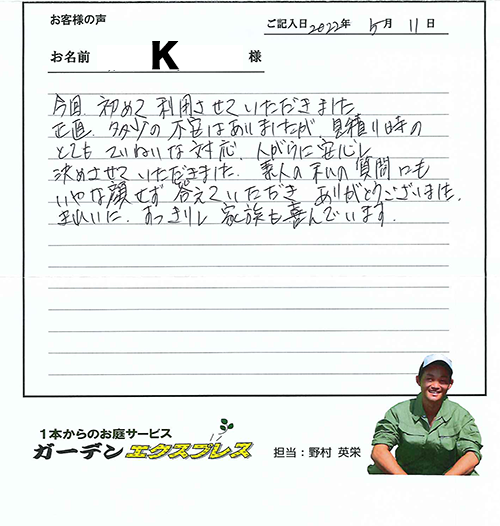 お客様の声
ご記入日 2022年 5月 11日
お名前 K 様
今回 初めて利用させていただきました
正直 多少の不安はありましたが、見積り時の
とても ていねいな対応、人がらに安心し
決めさせていただきました。素人の私の質問にも
いやな顔せず 答えていただき ありがとうございました。
きれいに、すっきりし 家族も喜んでいます.
1本からのお庭サービス
ガーデンエクスプレス
担当：野村 英栄